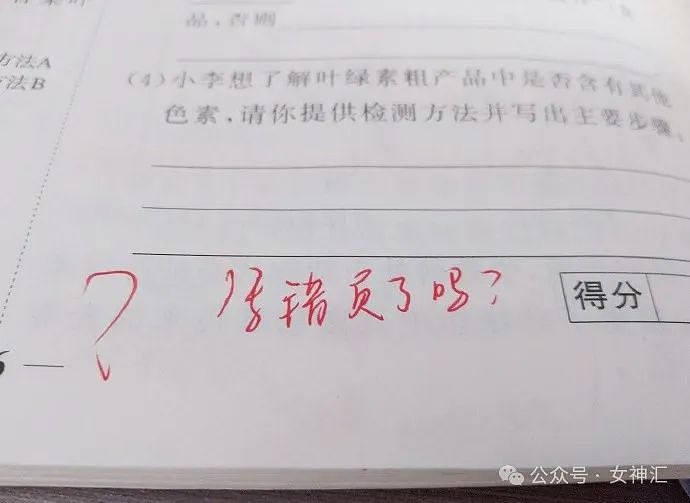 品，否则
方法A
方法B
(4)小李想了解叶绿素粗产品中是否含有其他
色素，请你提供检测方法并写出主要步骤。
？ 错页了吗？
得分
6 —
公众号 · 女神汇